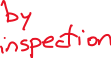 by
inspection